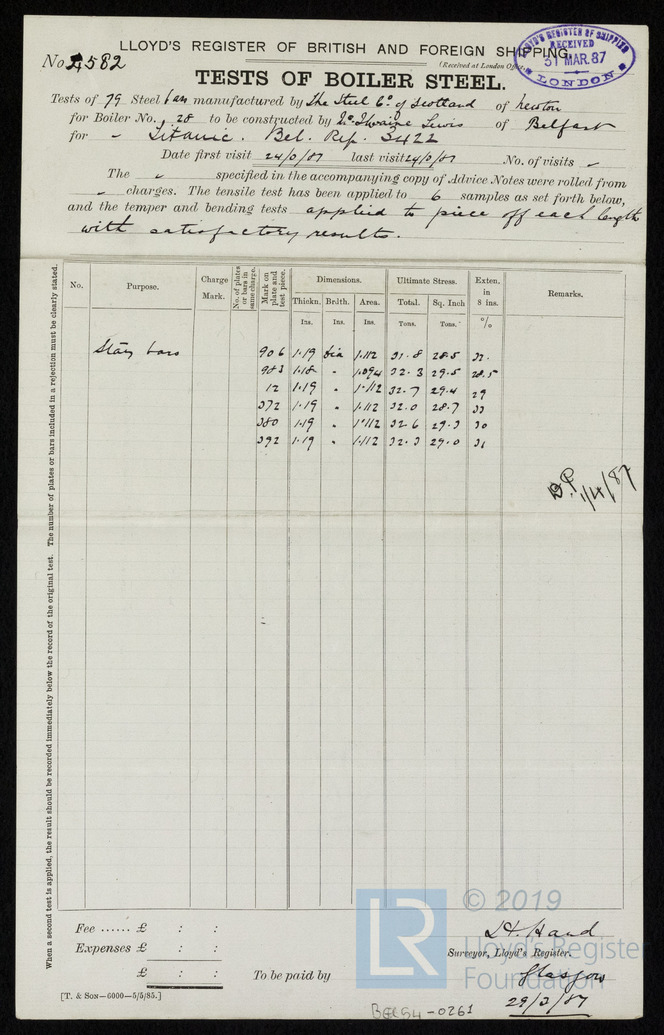 LLOYD'S REGISTER OF BRITISH AND FOREIGN SHIPPING.
No 582
(Received at London Office
LLOYD'S REGISTER OF SHIPPING
RECEIVED
31 MAR. 87
LONDON
TESTS OF BOILER STEEL.
Tests of 79 Steel bars manufactured by The Steel Co. of Scotland of Newton
for Boiler No. 28 to be constructed by McIlwaine Lewis of Belfast
for " Titanic. Bel. Rep. 3422
Date first visit 24/3/87 last visit 24/3/87 No. of visits "
The " specified in the accompanying copy of Advice Notes were rolled from
" charges. The tensile test has been applied to 6 samples as set forth below,
and the temper and bending tests applied to piece off each length
with satisfactory results.
When a second test is applied, the result should be recorded immediately below the record of the original test. The number of plates or bars included in a rejection must be clearly stated.
No. Purpose. Charge Mark. No. of plates or bars in same charge. Mark on plate and test piece. Dimensions. Ultimate Stress. Exten. in 8 ins. Remarks.
Thickn. Brdth. Area. Total. Sq. Inch
Ins. Ins. Ins. Tons. Tons. %
Stay bars 906 1.19 dia 1.112 31.8 28.5 32.
983 1.18 " 1.094 32.3 29.5 28.5
12 1.19 " 1.112 32.7 29.4 29
372 1.19 " 1.112 32.0 28.7 33
380 1.19 " 1.112 32.6 29.3 30
392 1.19 " 1.112 32.3 29.0 31
1/4/87
Fee ...... £ : :
Expenses £ : :
£ : :
To be paid by
Surveyor, Lloyd's Register.
Glasgow
29/3/87
[T. & SON—6000—5/5/85.]
LR
© 2019
Lloyd's Register
Foundation
BEL54-0261